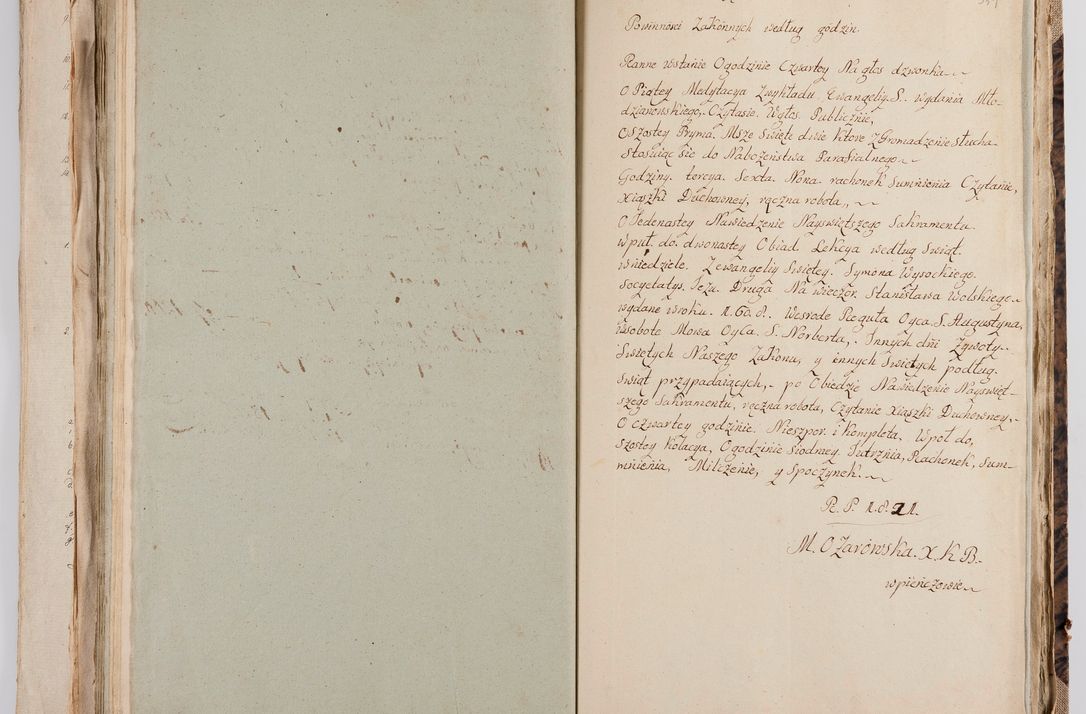 Powinności Zakonnych według godzin.
Ranne wstanie O godzinie Czwartey Na głos dzwonka.
O Piątey Medytacya Zwykładu. Ewangeliy. S. wydania Mło-
dzianowskiego, Czytasie. Wgłos. Publicznie,
O Szostey Pryma. Msze Swięte dwie Ktore Zgromadzenie słucha.
Stosuiąc się do Nabożeństwa Parafialnego.
Godziny. tercya. Sexta. Nona. rachonek Sumnienia Czytanie,
xiąszki Duchowney, ręczna robota,,
O Jedenastey Nawiedzenie Nayswiętszego Sakramentu.
wpuł. do. dwonastey Obiad Lekcya według Swiąt.
wniedziele. Zewangeliy Swiętey. Symona Wysockiego.
Socyetatys. Jezu. Druga. Na wieczor. Stanisława Wolskiego.
wydane wroku. 1.60.8.. Wesrode Reguła Oyca. S. Augustyna,
wsobote Mowa Oyca. S. Norberta,. Innych dni Zywoty.
Swiętych Naszego Zakonu, y innych Swiętych podług.
Swiąt przypadaiących,. po Obiedzie Nawiedzenie Nayswięt-
szego Sakramentu, ręczna robota, Czytanie xiąszki Duchowney,.
O czwartey godzinie. Nieszpor. i Kompleta. Wpoł do,
szostey Kolacya, O godzinie Siodmey. Jutrznia, Rachonek, Sum-
mnienia, Milczenie, y Spoczynek.
R. P. 1.8.21.
M. Ożarowska. X. K B.
wpieńczowie